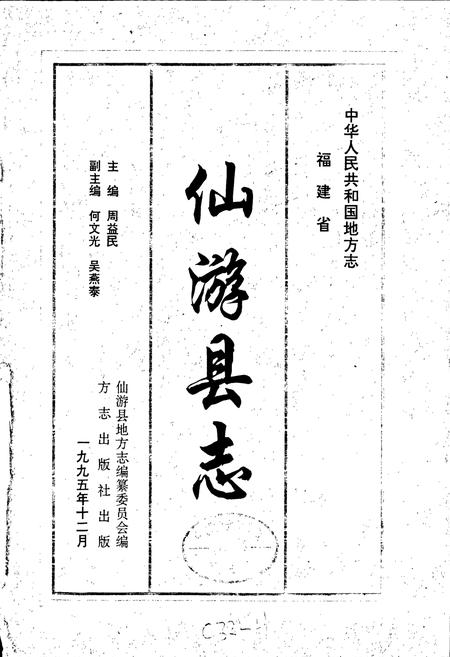 中华人民共和国地方志
福建省
仙游县志
主编 周益民
副主编 何文光 吴燕泰
仙游县地方志编纂委员会编
方志出版社出版
一九九五年十二月